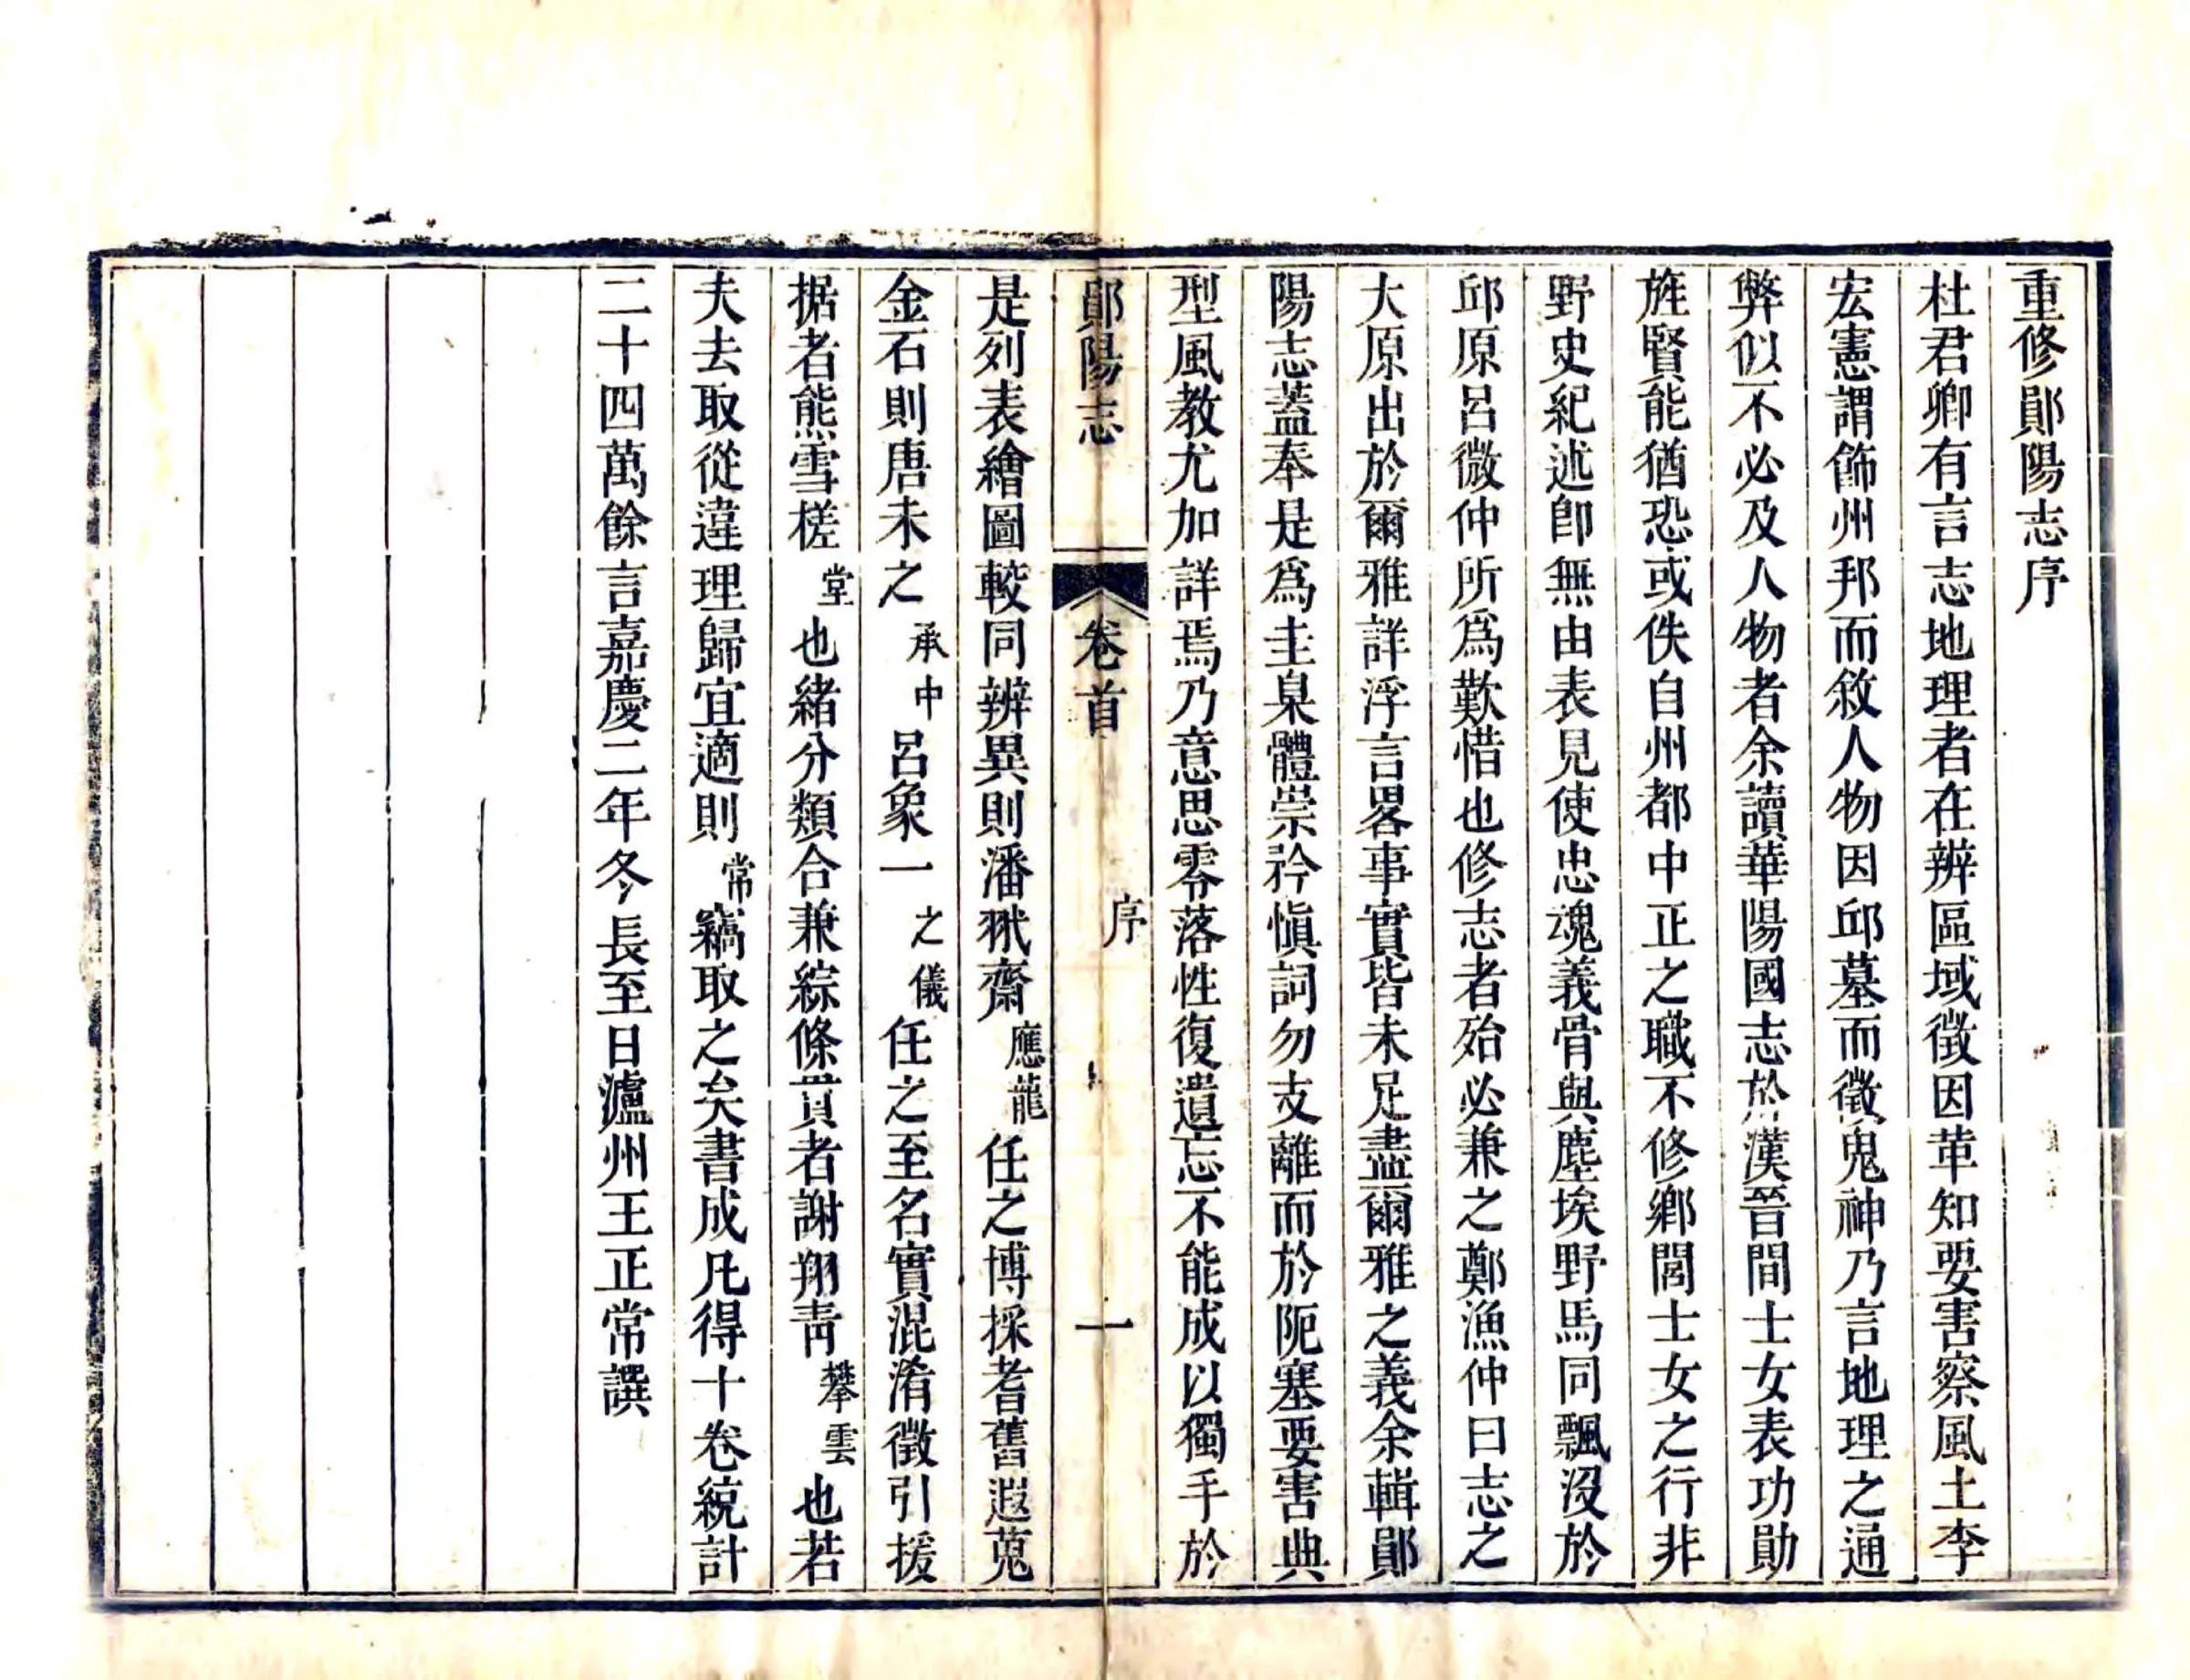 重修鄖陽志序
杜君卿有言志地理者在辨區域徵因革知要害察風土李
宏憲謂飾州邦而敘人物因邱墓而徵鬼神乃言地理之通
弊似不必及人物者余讀華陽國志於漢晉間士女表功勛
旌賢能猶恐或佚自州都中正之職不修鄉閭士女之行非
野史紀述卽無由表見使忠魂義骨與塵埃野馬同飄沒於
邱原呂微仲所爲歎惜也修志者殆必兼之鄭漁仲曰志之
大原出於爾雅詳浮言畧事實皆未足盡爾雅之義余輯鄖
陽志蓋奉是爲主臬體崇矜愼詞勿支離而於阨塞要害典
型風教尤加詳焉乃意思零落性復遺忘不能成以獨手於
鄖陽志 卷首 序 一
是列表繪圖較同辨異則潘𣭈齋應龍任之博採耆舊遐蒐
金石則唐未之承中呂象一之儀任之至名實混淆徵引援
据者熊雪槎堂也緒分類合兼綜條貫者謝翔靑攀雲也若
夫去取從違理歸宜適則常竊取之矣書成凡得十卷統計
二十四萬餘言嘉慶二年冬長至日瀘州王正常譔